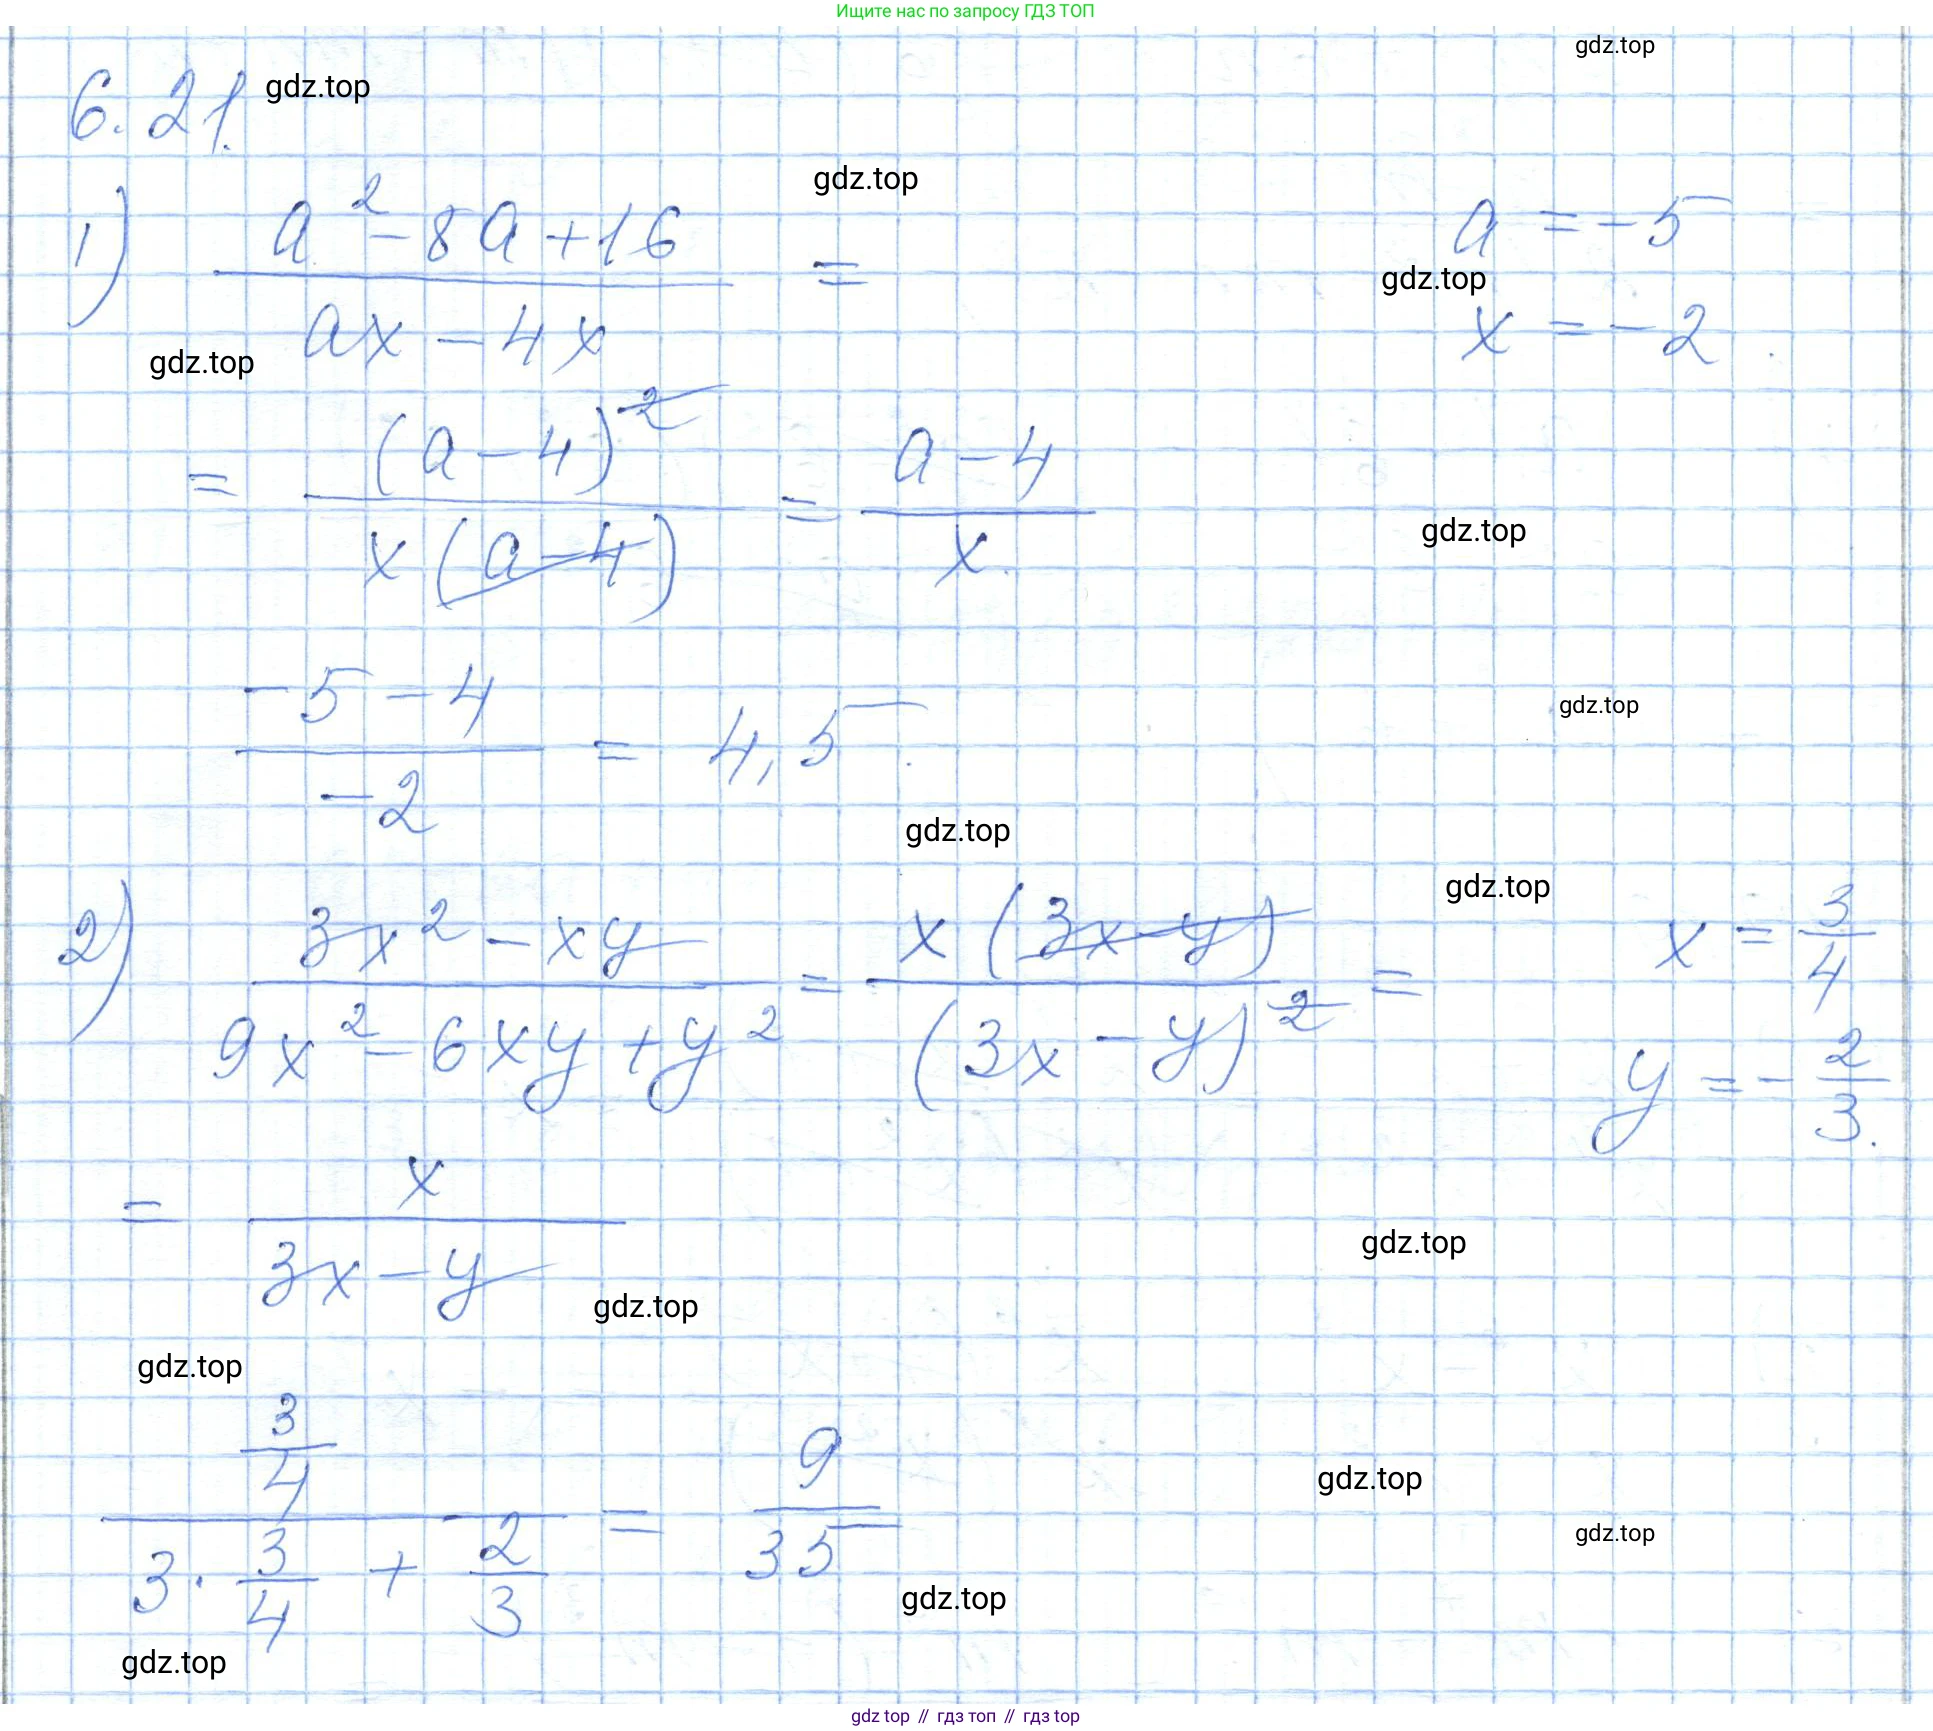 Ищите нас по запросу ГДЗ ТОП
gdz.top
6.21. gdz.top
gdz.top
1) (a² - 8a + 16)/(ax - 4x) =
a = -5
gdz.top
x = -2.
gdz.top
= (a - 4)²/(x(a - 4)) = (a - 4)/x.
gdz.top
(-5 - 4)/(-2) = 4,5.
gdz.top
gdz.top
gdz.top
2) (3x² - xy)/(9x² - 6xy + y²) = x(3x - y)/(3x - y)² =
x = 3/4
y = -2/3.
= x/(3x - y)
gdz.top
gdz.top
gdz.top
(3/4)/(3 · 3/4 + 2/3) = 9/35
gdz.top
gdz.top
gdz.top
gdz.top
gdz top // гдз топ // гдз top